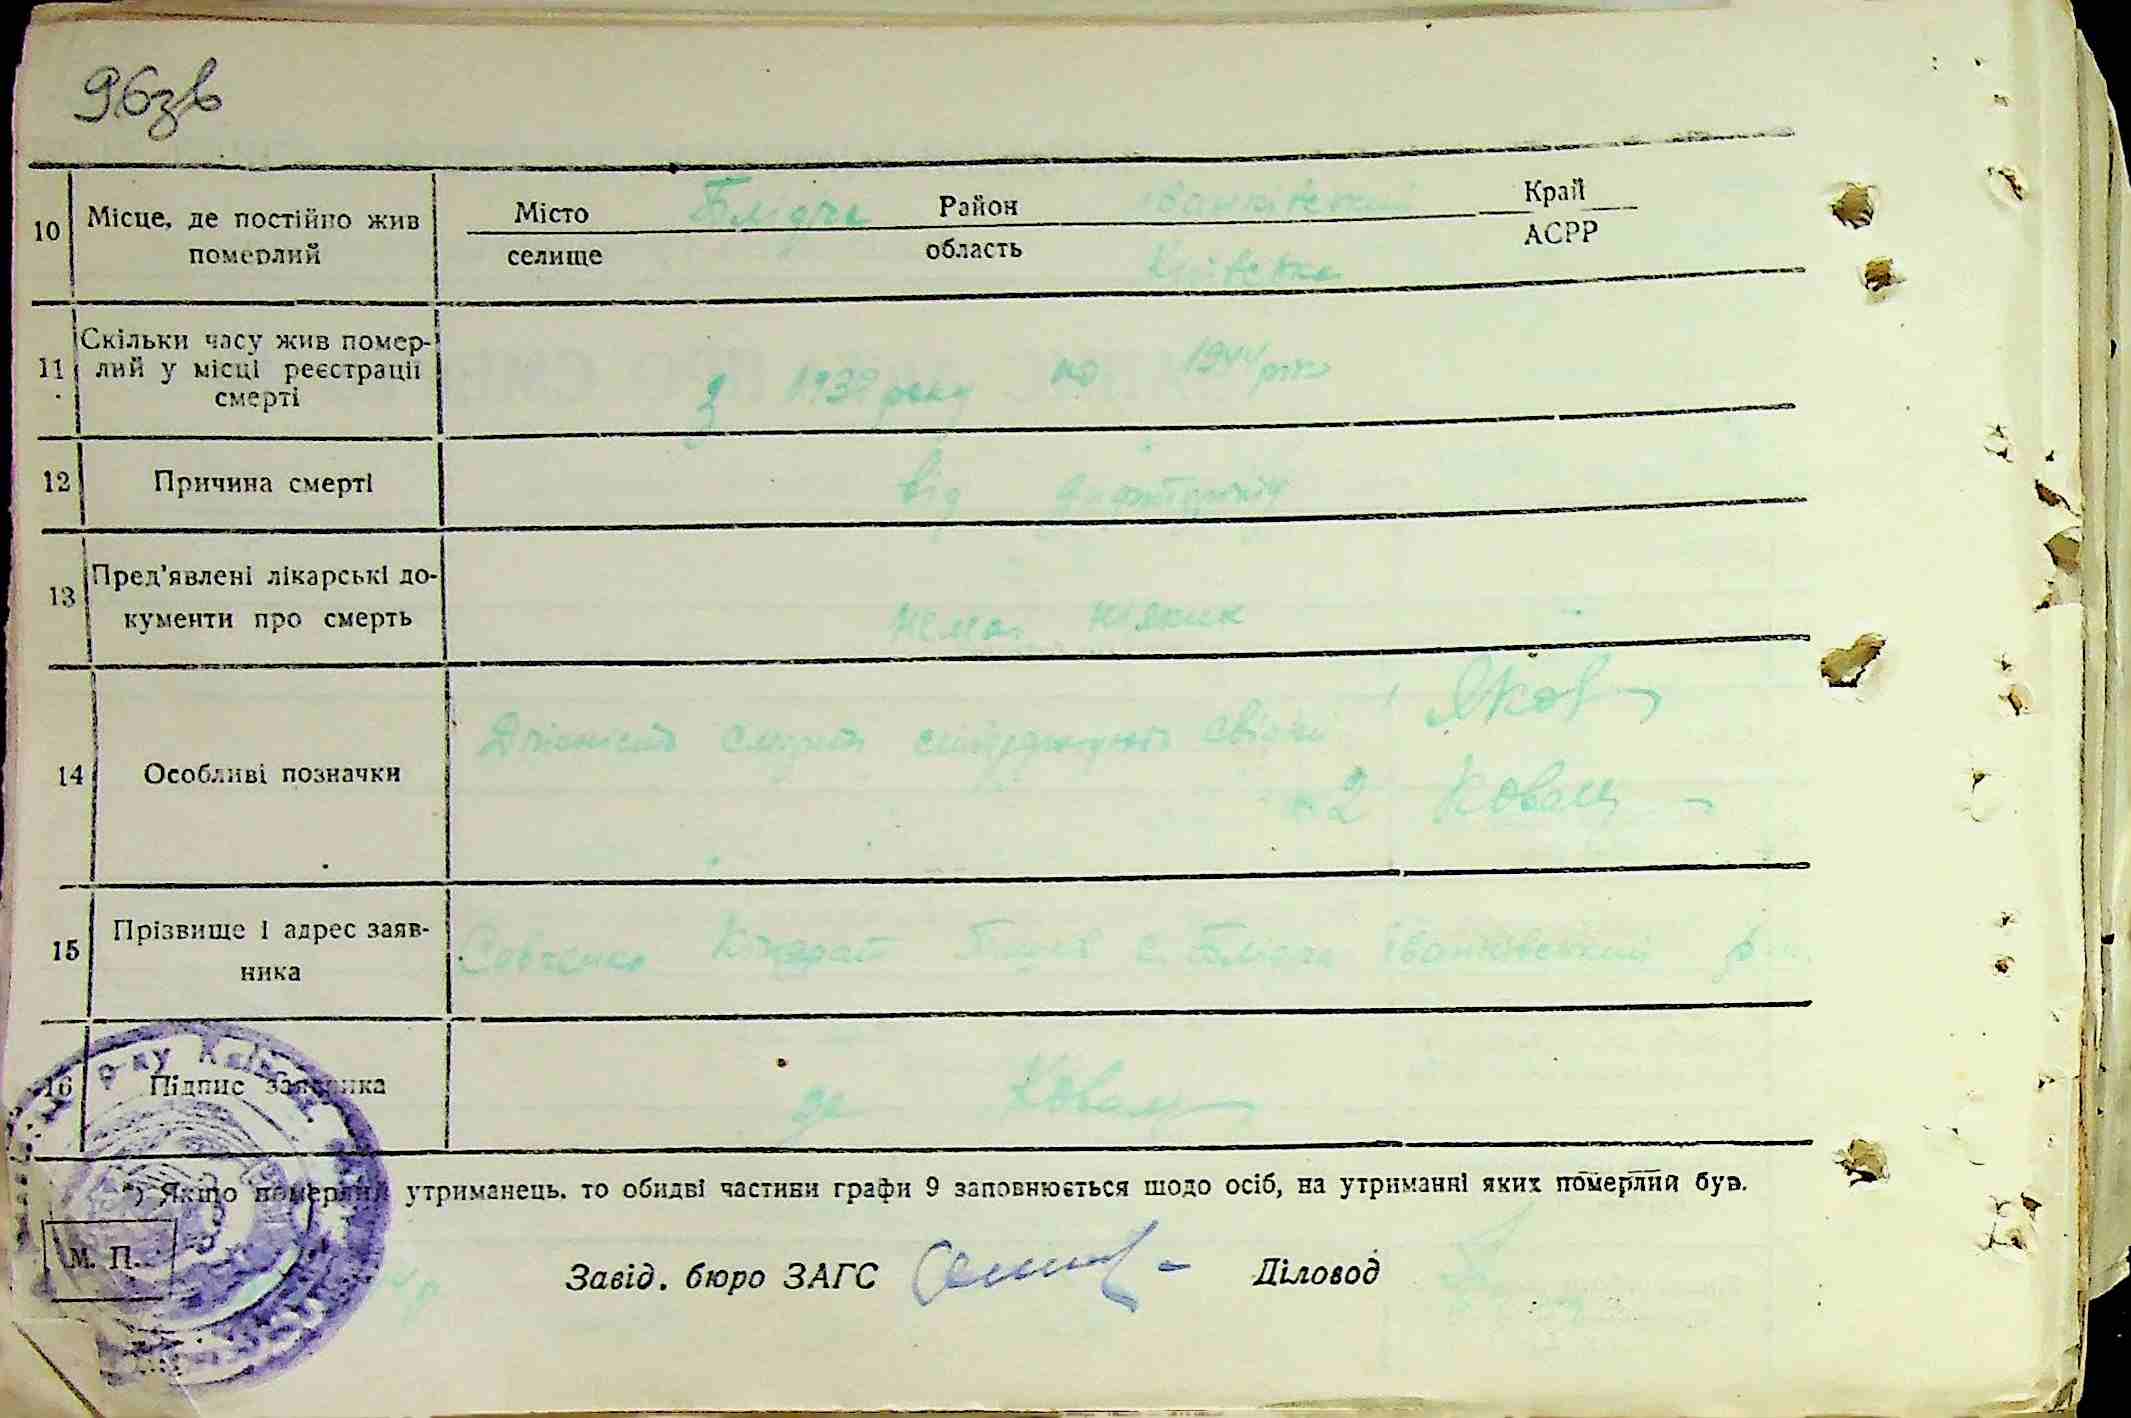 96зв
10 Місце, де постійно жив померлий
Місто Блідча Район Іванківський Край
селище область Київська АСРР
11 Скільки часу жив помер-
лий у місці реєстрації
смерті
з 1938 року по 1944 рік
12 Причина смерті від
13 Пред'явлені лікарські до-
кументи про смерть
нема ніяких
14 Особливі позначки
Дійсність смерті стверджують свідки 1 Яков
2 Коваль
15 Прізвище і адрес заяв-
ника
Савченко Кіндрат с. Блідча Іванківський р-н
16 Підпис заявника за Коваль
*) Якщо померлий утриманець, то обидві частини графи 9 заповнюється щодо осіб, на утриманні яких померлий був.
М. П.
Завід. бюро ЗАГС Діловод